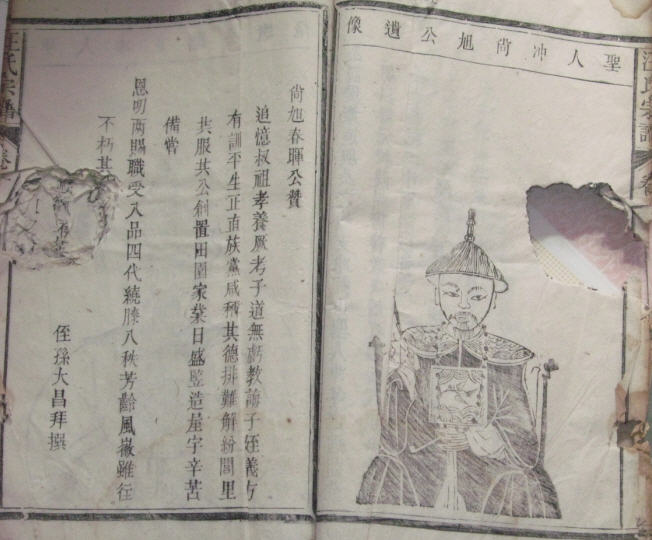 汪氏宗譜 卷
聖人冲尚旭公遺像
尚旭春暉公贊
追憶叔祖孝養厥考子道無虧教誨子姪義方
有訓平生正直族黨咸稱其德排難解紛閭里
共服其公創置田園家業日盛竪造屋宇辛苦
備嘗
恩明兩賜職受八品四代繞膝八秩芳齡風徽雖往
不朽其
姪孫大昌拜撰
汪氏宗譜 卷